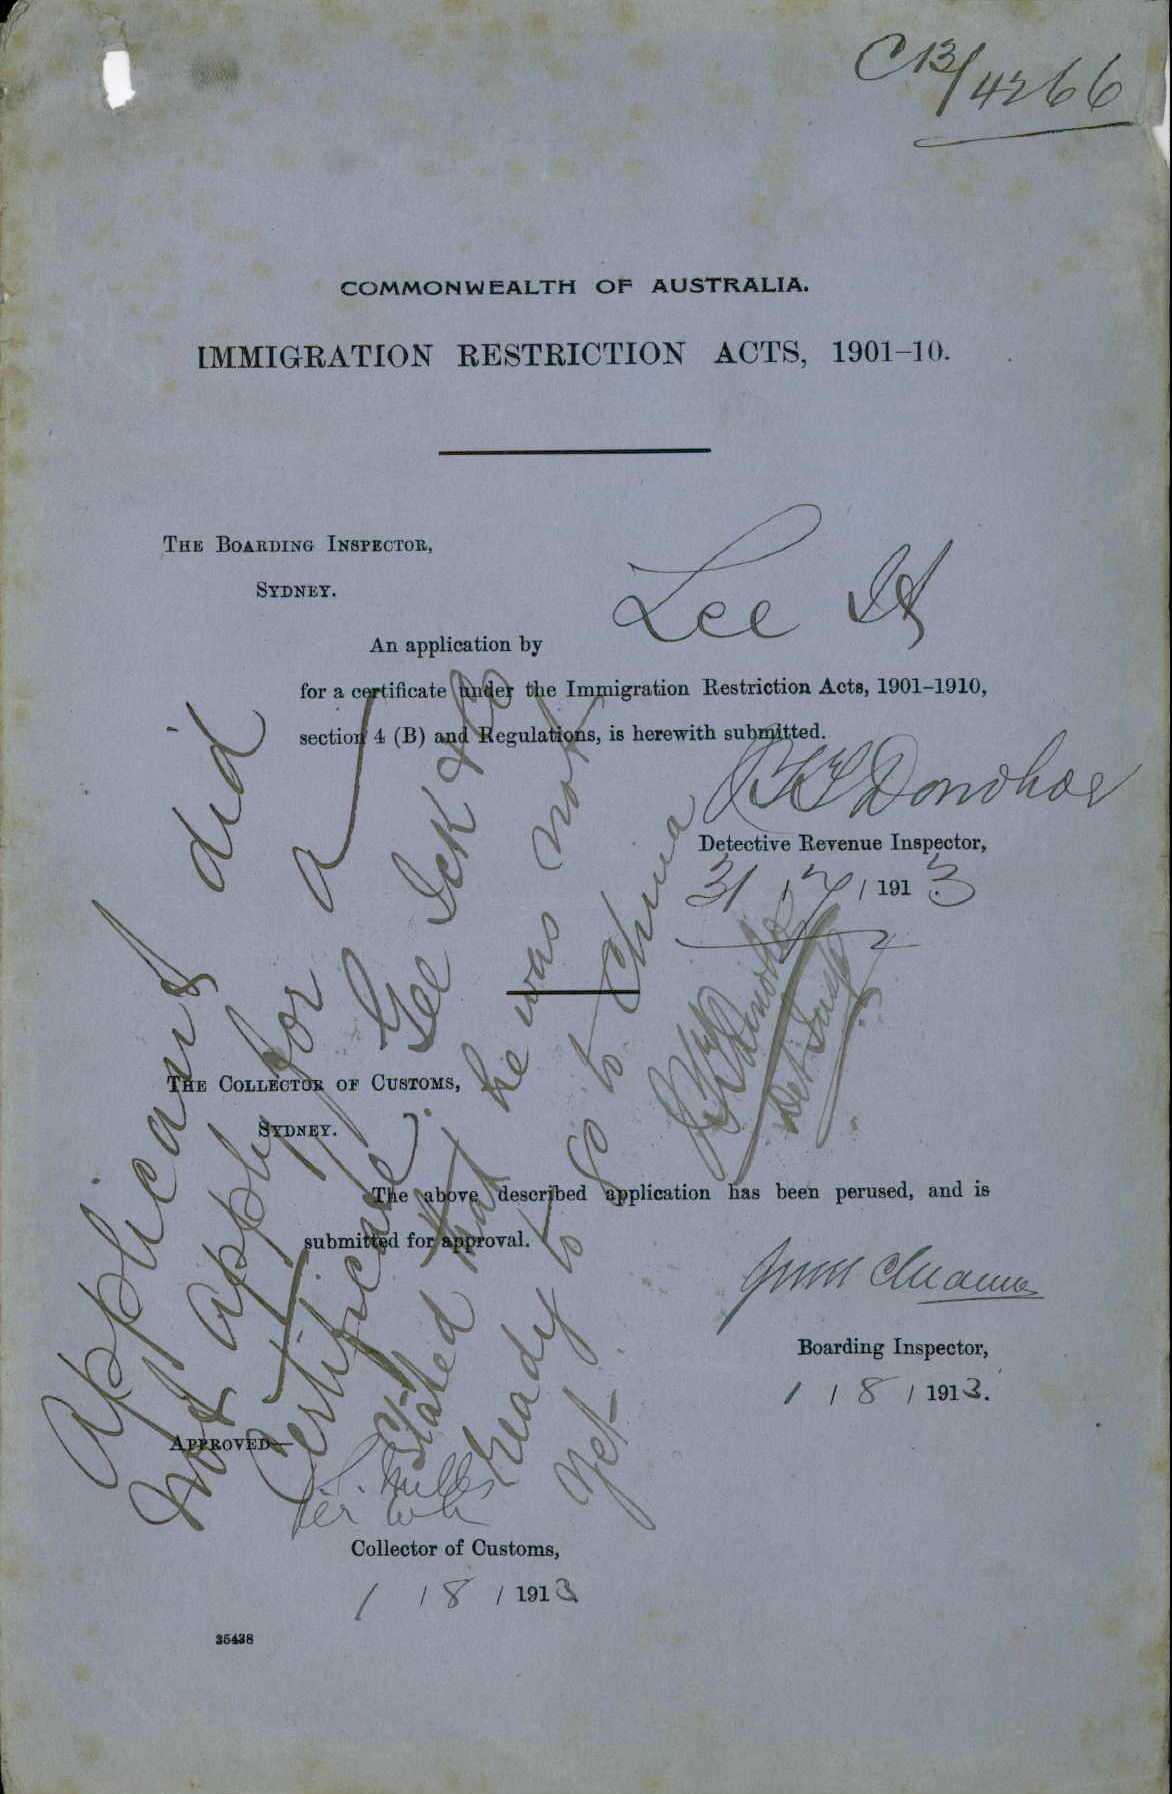 C13/4266
COMMONWEALTH OF AUSTRALIA.
IMMIGRATION RESTRICTION ACTS, 1901-10.
THE BOARDING INSPECTOR,
SYDNEY.
An application by Lee
for a certificate under the Immigration Restriction Acts, 1901-1910,
section 4 (B) and Regulations, is herewith submitted.
Donohoe
Detective Revenue Inspector,
31 / 7 / 1913
THE COLLECTOR OF CUSTOMS,
SYDNEY.
The above described application has been perused, and is
submitted for approval.
Boarding Inspector,
1 / 8 / 1913.
APPROVED—
Collector of Customs,
1 / 8 / 1913
35438
Applicant did
not apply for a
Certificate. Gee Ick & Co
Stated that he was not
ready to go to China
yet
Donohoe
Det Insp